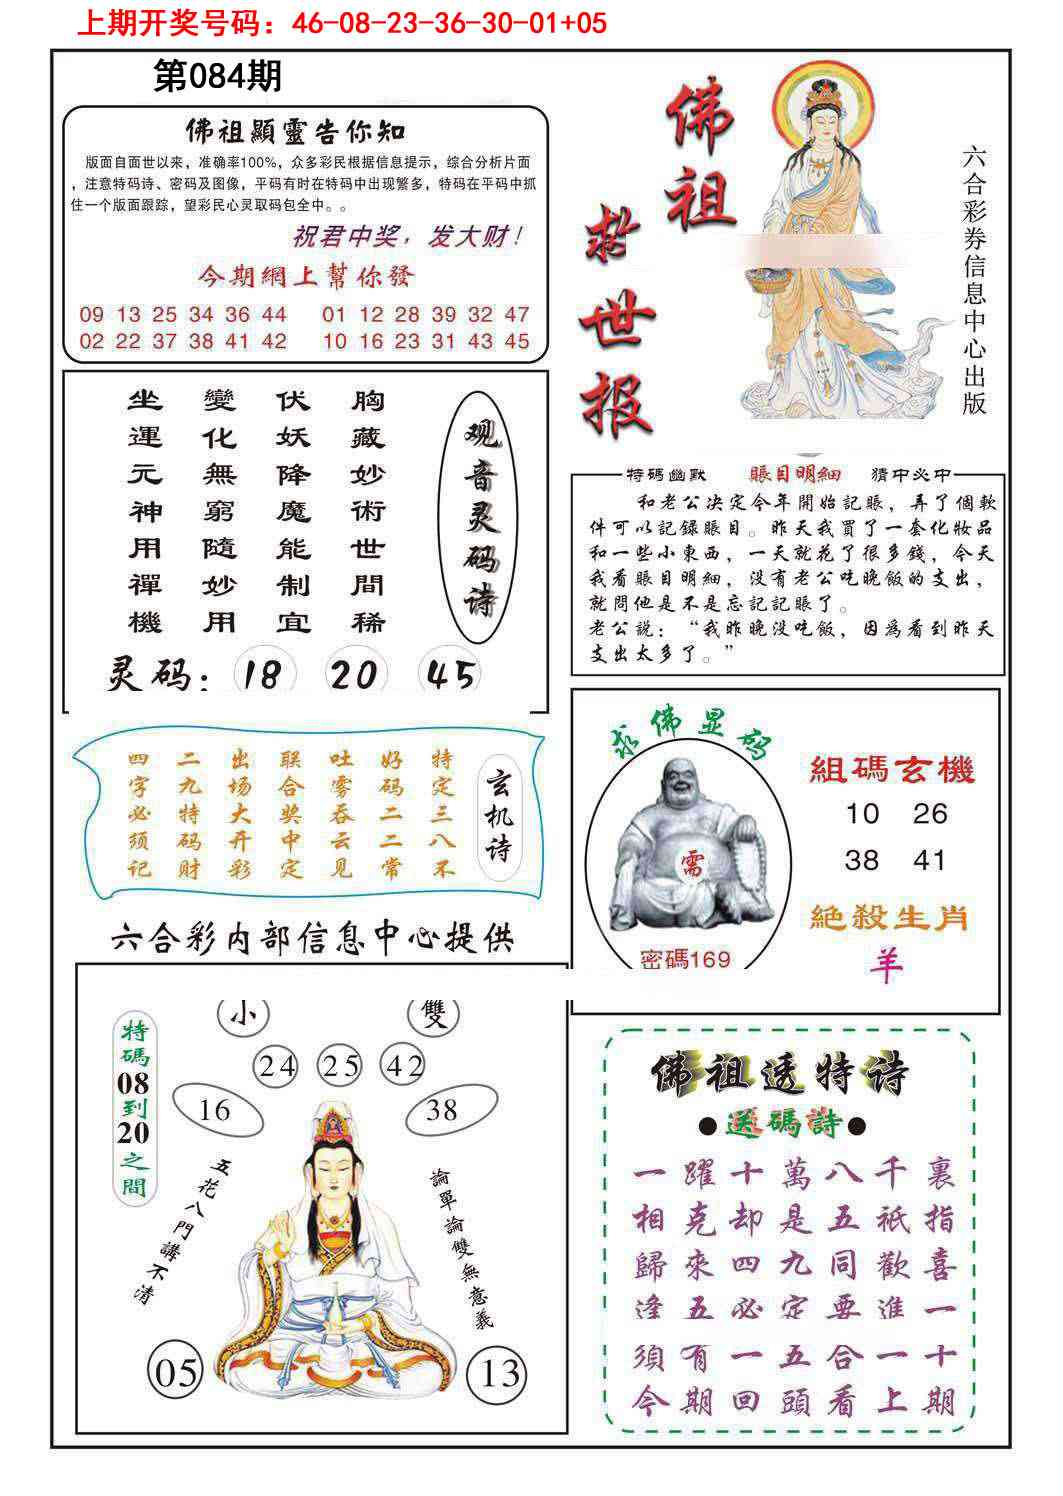 上期开奖号码：46-08-23-36-30-01+05
第084期
佛祖顯靈告你知
版面自面世以来，准确率100%，众多彩民根据信息提示，综合分析片面
，注意特码诗、密码及图像，平码有时在特码中出现繁多，特码在平码中抓
住一个版面跟踪，望彩民心灵取码包全中。。
祝君中奖，发大财！
今期網上幫你發
09 13 25 34 36 44 01 12 28 39 32 47
02 22 37 38 41 42 10 16 23 31 43 45
佛祖
救世报
六合彩券信息中心出版
观音灵码诗
胸藏妙術世間稀
伏妖降魔能制宜
變化無窮隨妙用
坐運元神用禪機
灵码：18 20 45
特碼幽默 賬目明細 猜中必中
和老公决定今年開始記賬，弄了個軟
件可以記録賬目。昨天我買了一套化妝品
和一些小東西，一天就花了很多錢，今天
我看賬目明細，没有老公吃晚飯的支出，
就問他是不是忘記記賬了。
老公説：“我昨晚没吃飯，因為看到昨天
支出太多了。”
玄机诗
特定三八不
好码二二常
吐雾吞云见
联合奖中定
出场大开彩
二九特码财
四字必须记
求佛显码
需
密碼169
組碼玄機
10 26
38 41
絶殺生肖
羊
六合彩内部信息中心提供
小 雙
24 25 42
16 38
特碼08到20之間
五花八門講不清
論單論雙無意義
05 13
佛祖透特诗
●送碼詩●
一躍十萬八千裏
相克却是五祇指
歸來四九同歡喜
逢五必定要進一
須有一五合一十
今期回頭看上期